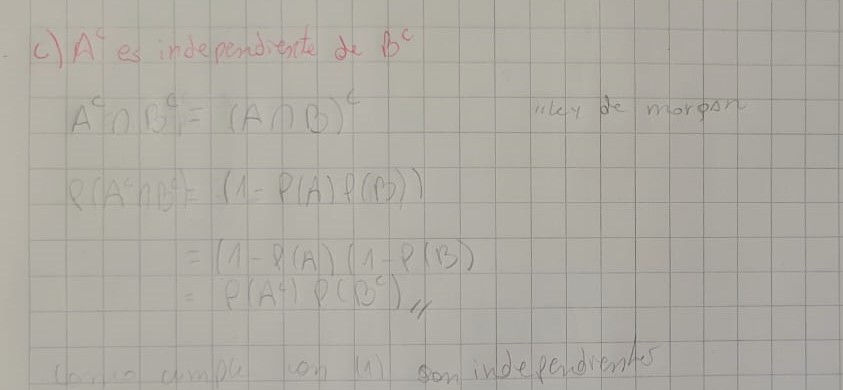 c) Aᶜ es independiente de Bᶜ
Aᶜ ∩ Bᶜ = (A ∩ B)ᶜ "Ley de morgan
P(Aᶜ∩Bᶜ) = (1 - P(A) P(B))
= (1 - P(A) (1 - P(B)
= P(Aᶜ) P(Bᶜ) //
Como cumple con (1) son independientes